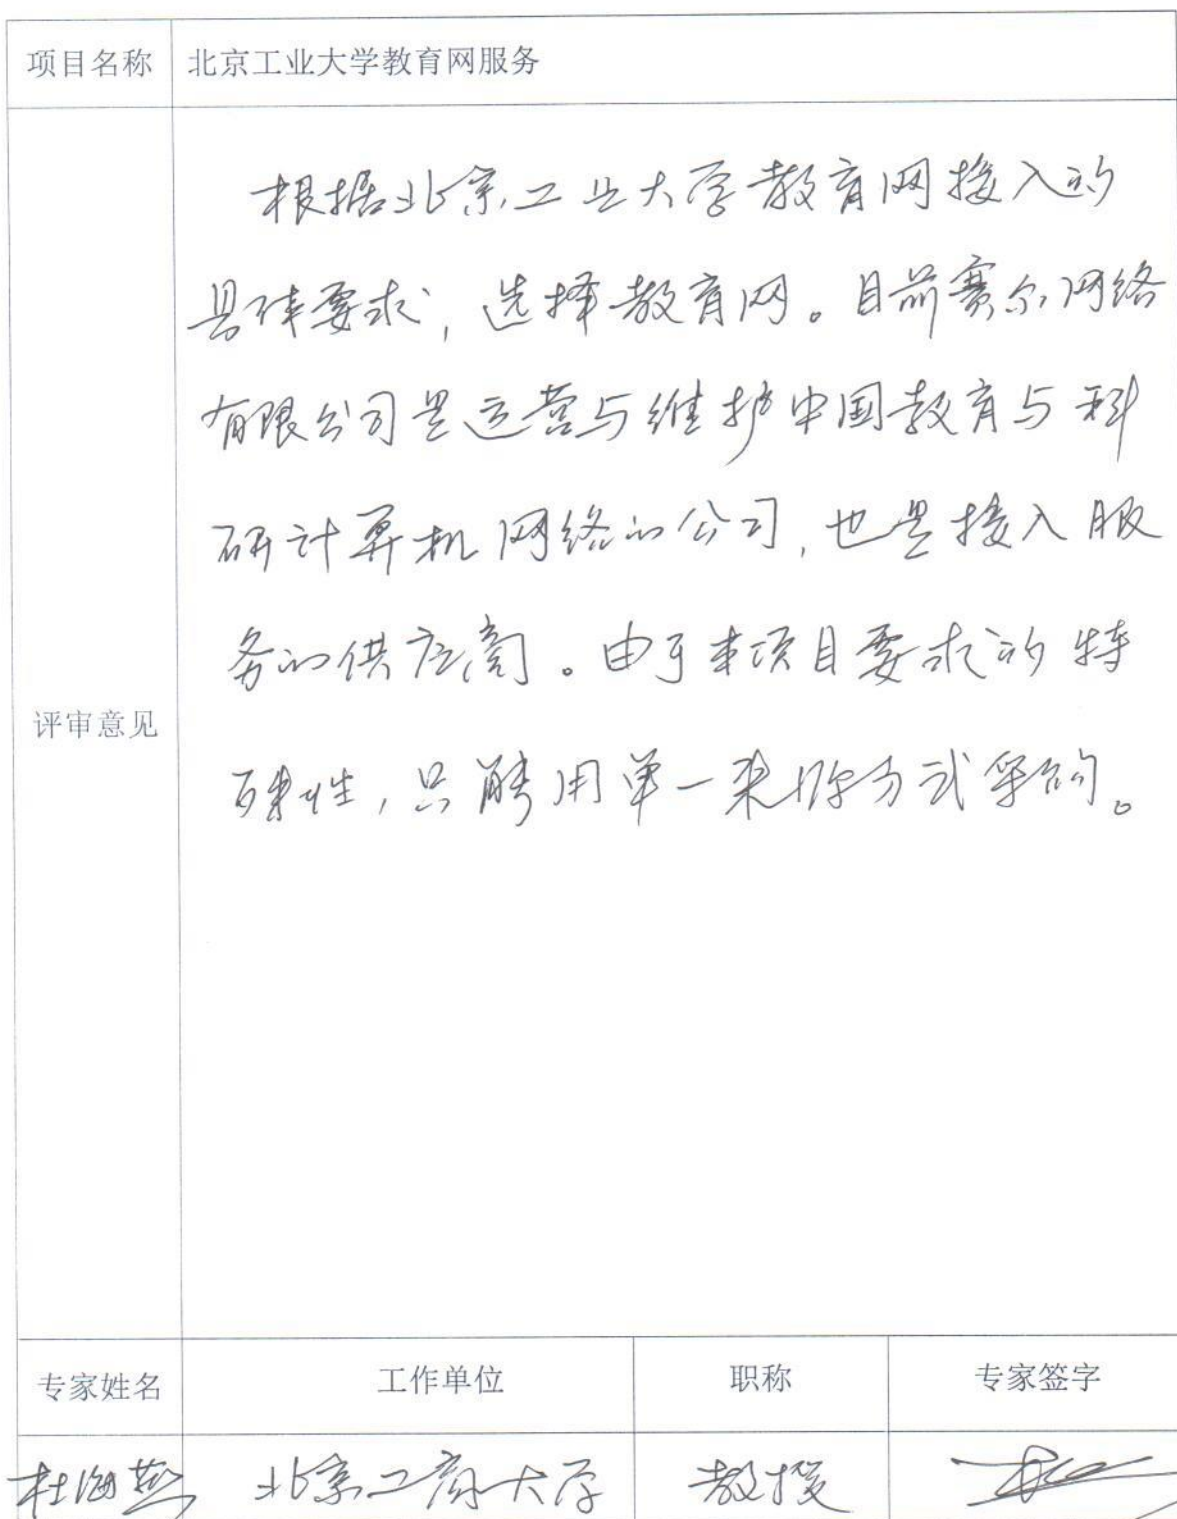 项目名称 北京工业大学教育网服务
根据北京工业大学教育网接入的
具体要求，选择教育网。目前赛尔网络
有限公司是运营与维护中国教育与科
研计算机网络的公司，也是接入服
务的供应商。由于本项目要求的特
评审意见
殊性，只能用单一来源方式采购。
专家姓名 工作单位 职称 专家签字
杜海燕 北京工商大学 教授